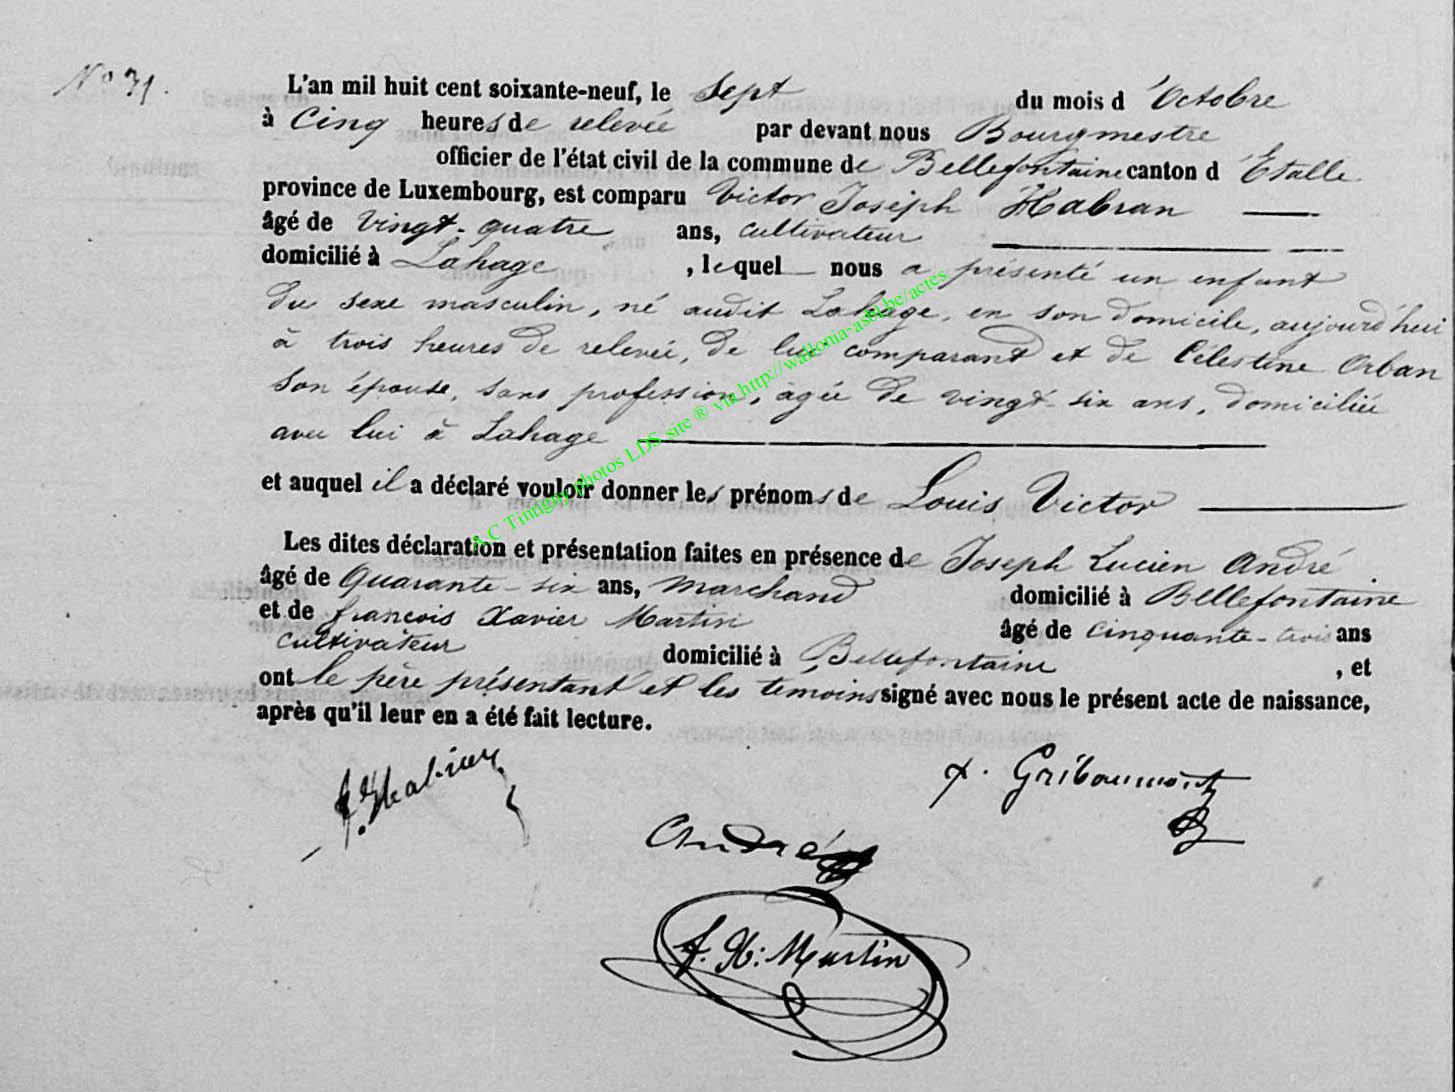 N° 31.
L'an mil huit cent soixante-neuf, le sept du mois d'Octobre
à Cinq heures de relevée par devant nous Bourgmestre
officier de l'état civil de la commune de Bellefontaine canton d'Etalle
province de Luxembourg, est comparu Victor Joseph Habran
âgé de vingt-quatre ans, cultivateur
domicilié à Lahage, lequel nous a présenté un enfant
du sexe masculin, né audit Lahage, en son domicile, aujourd'hui
à trois heures de relevée, de lui comparant et de Célestine Orban
son épouse, sans profession, agée de vingt-six ans, domiciliée
avec lui à Lahage
et auquel il a déclaré vouloir donner les prénoms de Louis Victor
Les dites déclaration et présentation faites en présence de Joseph Lucien André
âgé de Quarante-six ans, marchand domicilié à Bellefontaine
et de françois Xavier Martin âgé de cinquante-trois ans
cultivateur domicilié à Bellefontaine, et
ont le père présentant et les témoins signé avec nous le présent acte de naissance,
après qu'il leur en a été fait lecture.
Habran
Gribaumont
André
f. X: Martin
A.C Tintigny photos LDS site ® via http://wallonia-asbl.be/actes